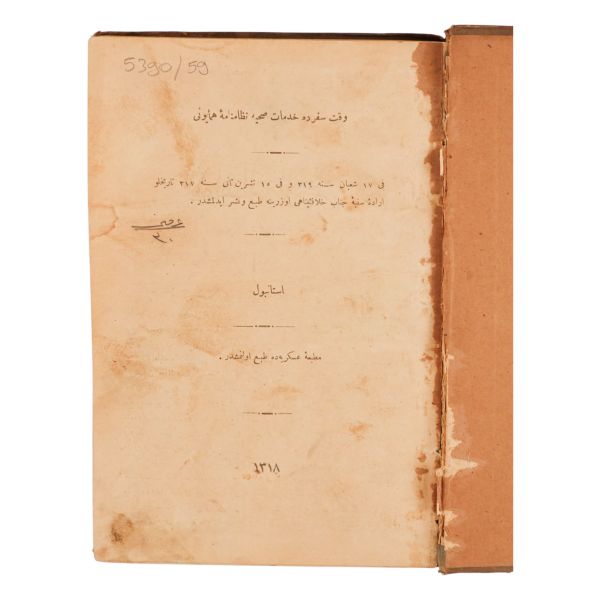 5390/59
وقت سفرده خدمات صحیه نظامنامهٔ همایونی
فی ١٧ شعبان سنه ٣١٩ و فی ١٥ تشرین ثانی سنه ٣١٧ تاریخلو
ارادهٔ سنیهٔ جناب خلافتپناهی اوزرینه طبع و نشر ایدلمشدر .
٣٠
استانبول
مطبعهٔ عسکریه‌ده طبع اولنمشدر .
١٣١٨